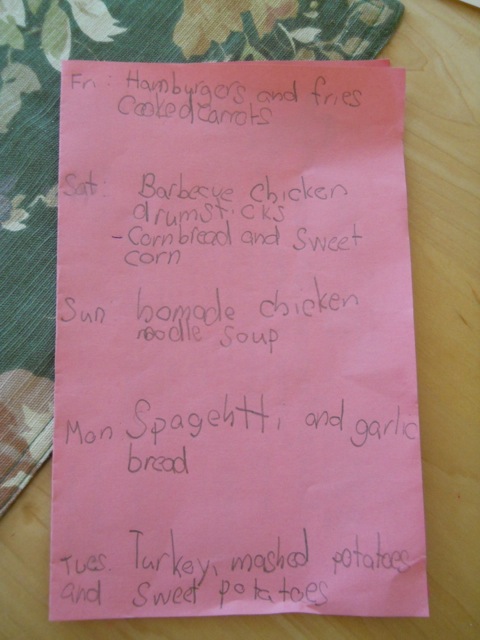 Fri: Hamburgers and fries
Cooked carrots
Sat: Barbecye chicken
drumsticks
- Cornbread and sweet
corn
Sun homade chicken
noodle soup
Mon Spagehtti and garlic
bread
Tues. Turkey, mashed potatoes
and sweet potatoes